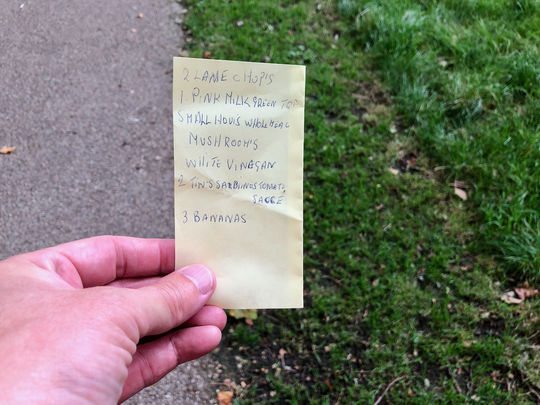 2 LAME CHOP'S
1 PINK MILK GREEN TOP
SMALL HOVIS WHOLEMEAL
MUSHROOM'S
WHITE VINEGAR
2 TIN'S SARDINES TOMATO
SAUCE
3 BANANAS